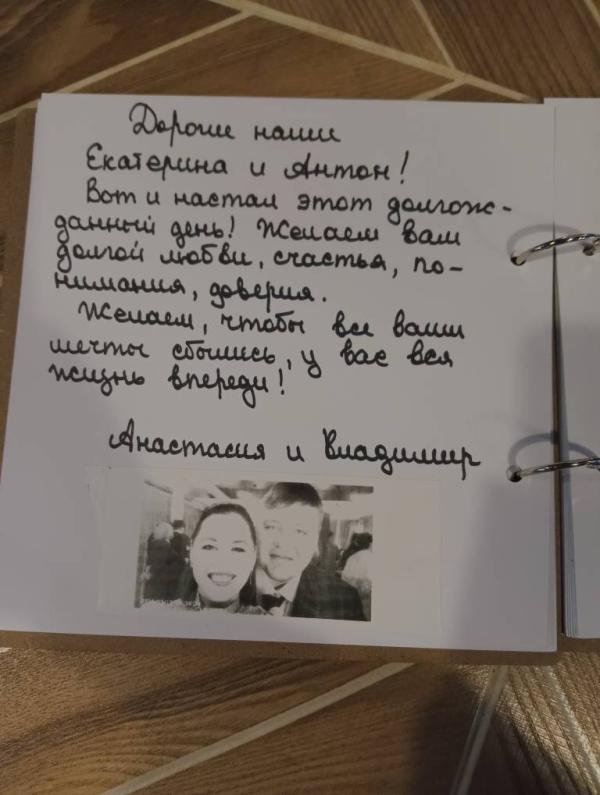 Дорогие наши
Екатерина и Антон!
Вот и настал этот долгож-
данный день! Желаем вам
долгой любви, счастья, по-
нимания, доверия.
Желаем, чтобы все ваши
мечты сбылись, у вас вся
жизнь впереди!
Анастасия и Владимир